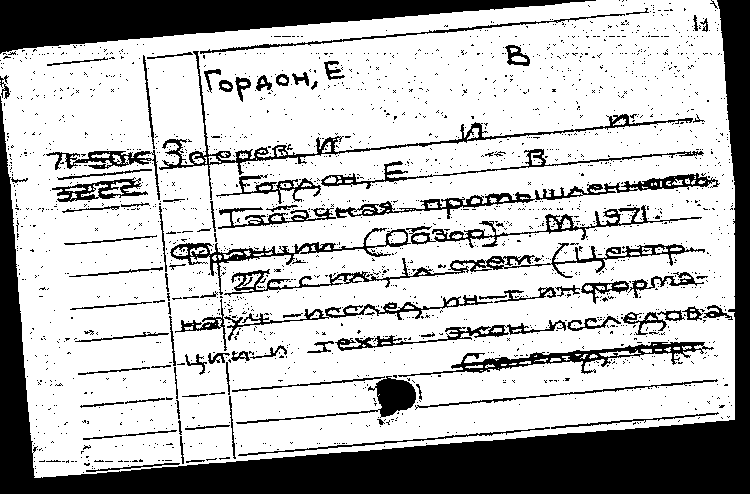 Гордон, Е В
71-50к Зверев, И И П
3222 Гордон, Е В
Табачная промышленность
Франции. (Обзор). М, 1971.
27с. с ил., 1л. схем. (Центр.
науч-исслед. ин-т информа-
ции и техн. - экон. исследова-
См. след. карт.